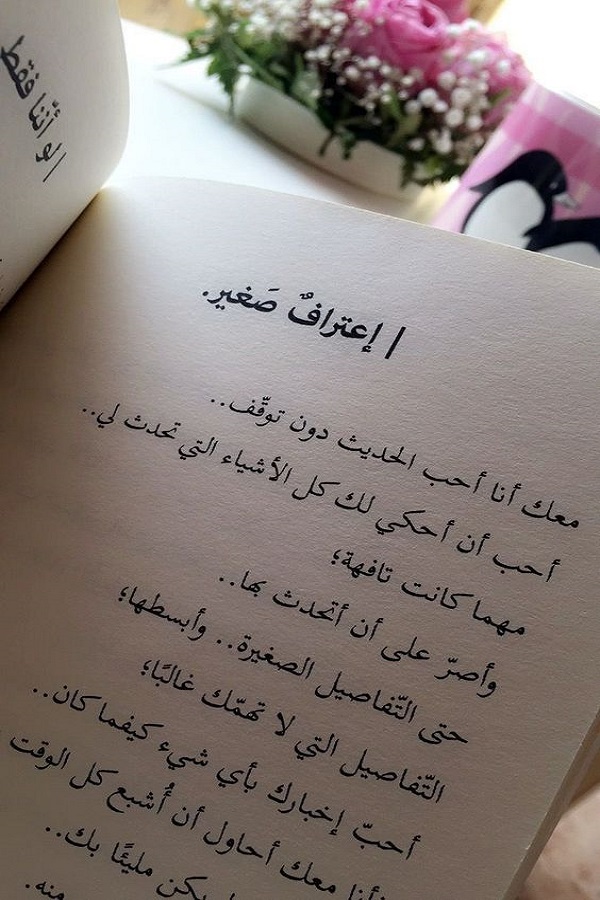 لو أننا فقط
| إعترافٌ صَغير.
معك أنا أحب الحديث دون توقّف..
أحب أن أحكي لك كل الأشياء التي تحدث لي..
مهما كانت تافهة؛
وأصرّ على أن أتحدث بها..
حتى التّفاصيل الصغيرة.. وأبسطها؛
التّفاصيل التي لا تهمّك غالبًا؛
أحبّ إخبارك بأي شيء كيفما كان..
معك أحاول أن أُشبع كل الوقت
يكن مليئًا بك..
منه.